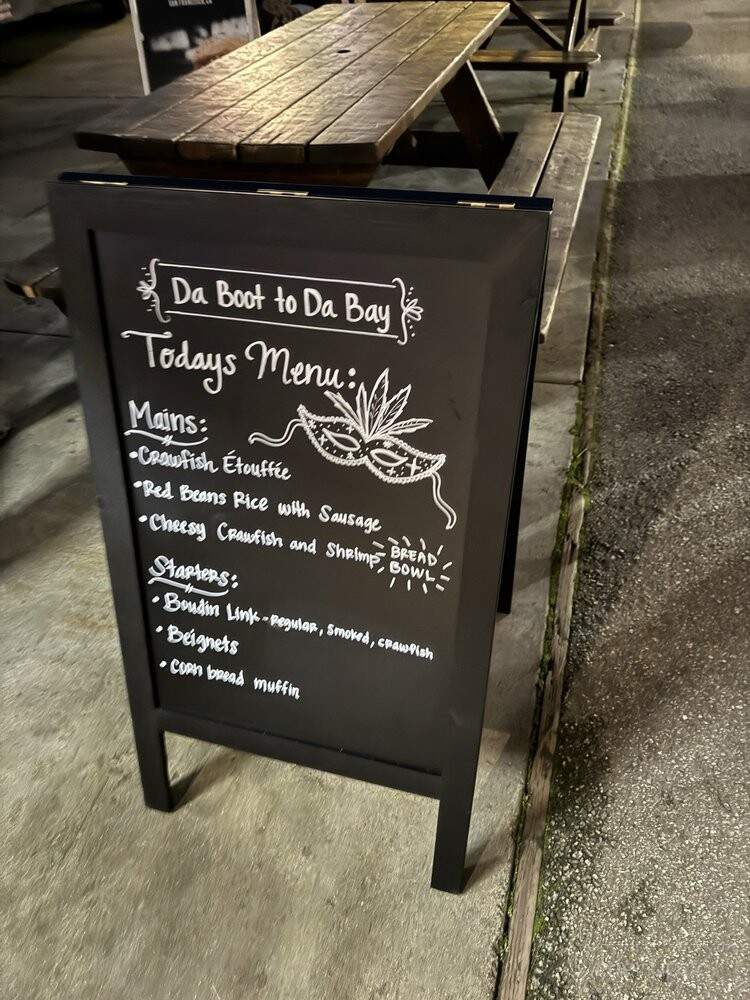 SAN FRANCISCO, CA
Da Boot to Da Bay
Todays Menu:
Mains:
• Crawfish Étouffée
• Red Beans Rice with Sausage
• Cheesy Crawfish and Shrimp BREAD BOWL
Starters:
• Boudin Link - Regular, Smoked, crawfish
• Beignets
• Corn bread muffin